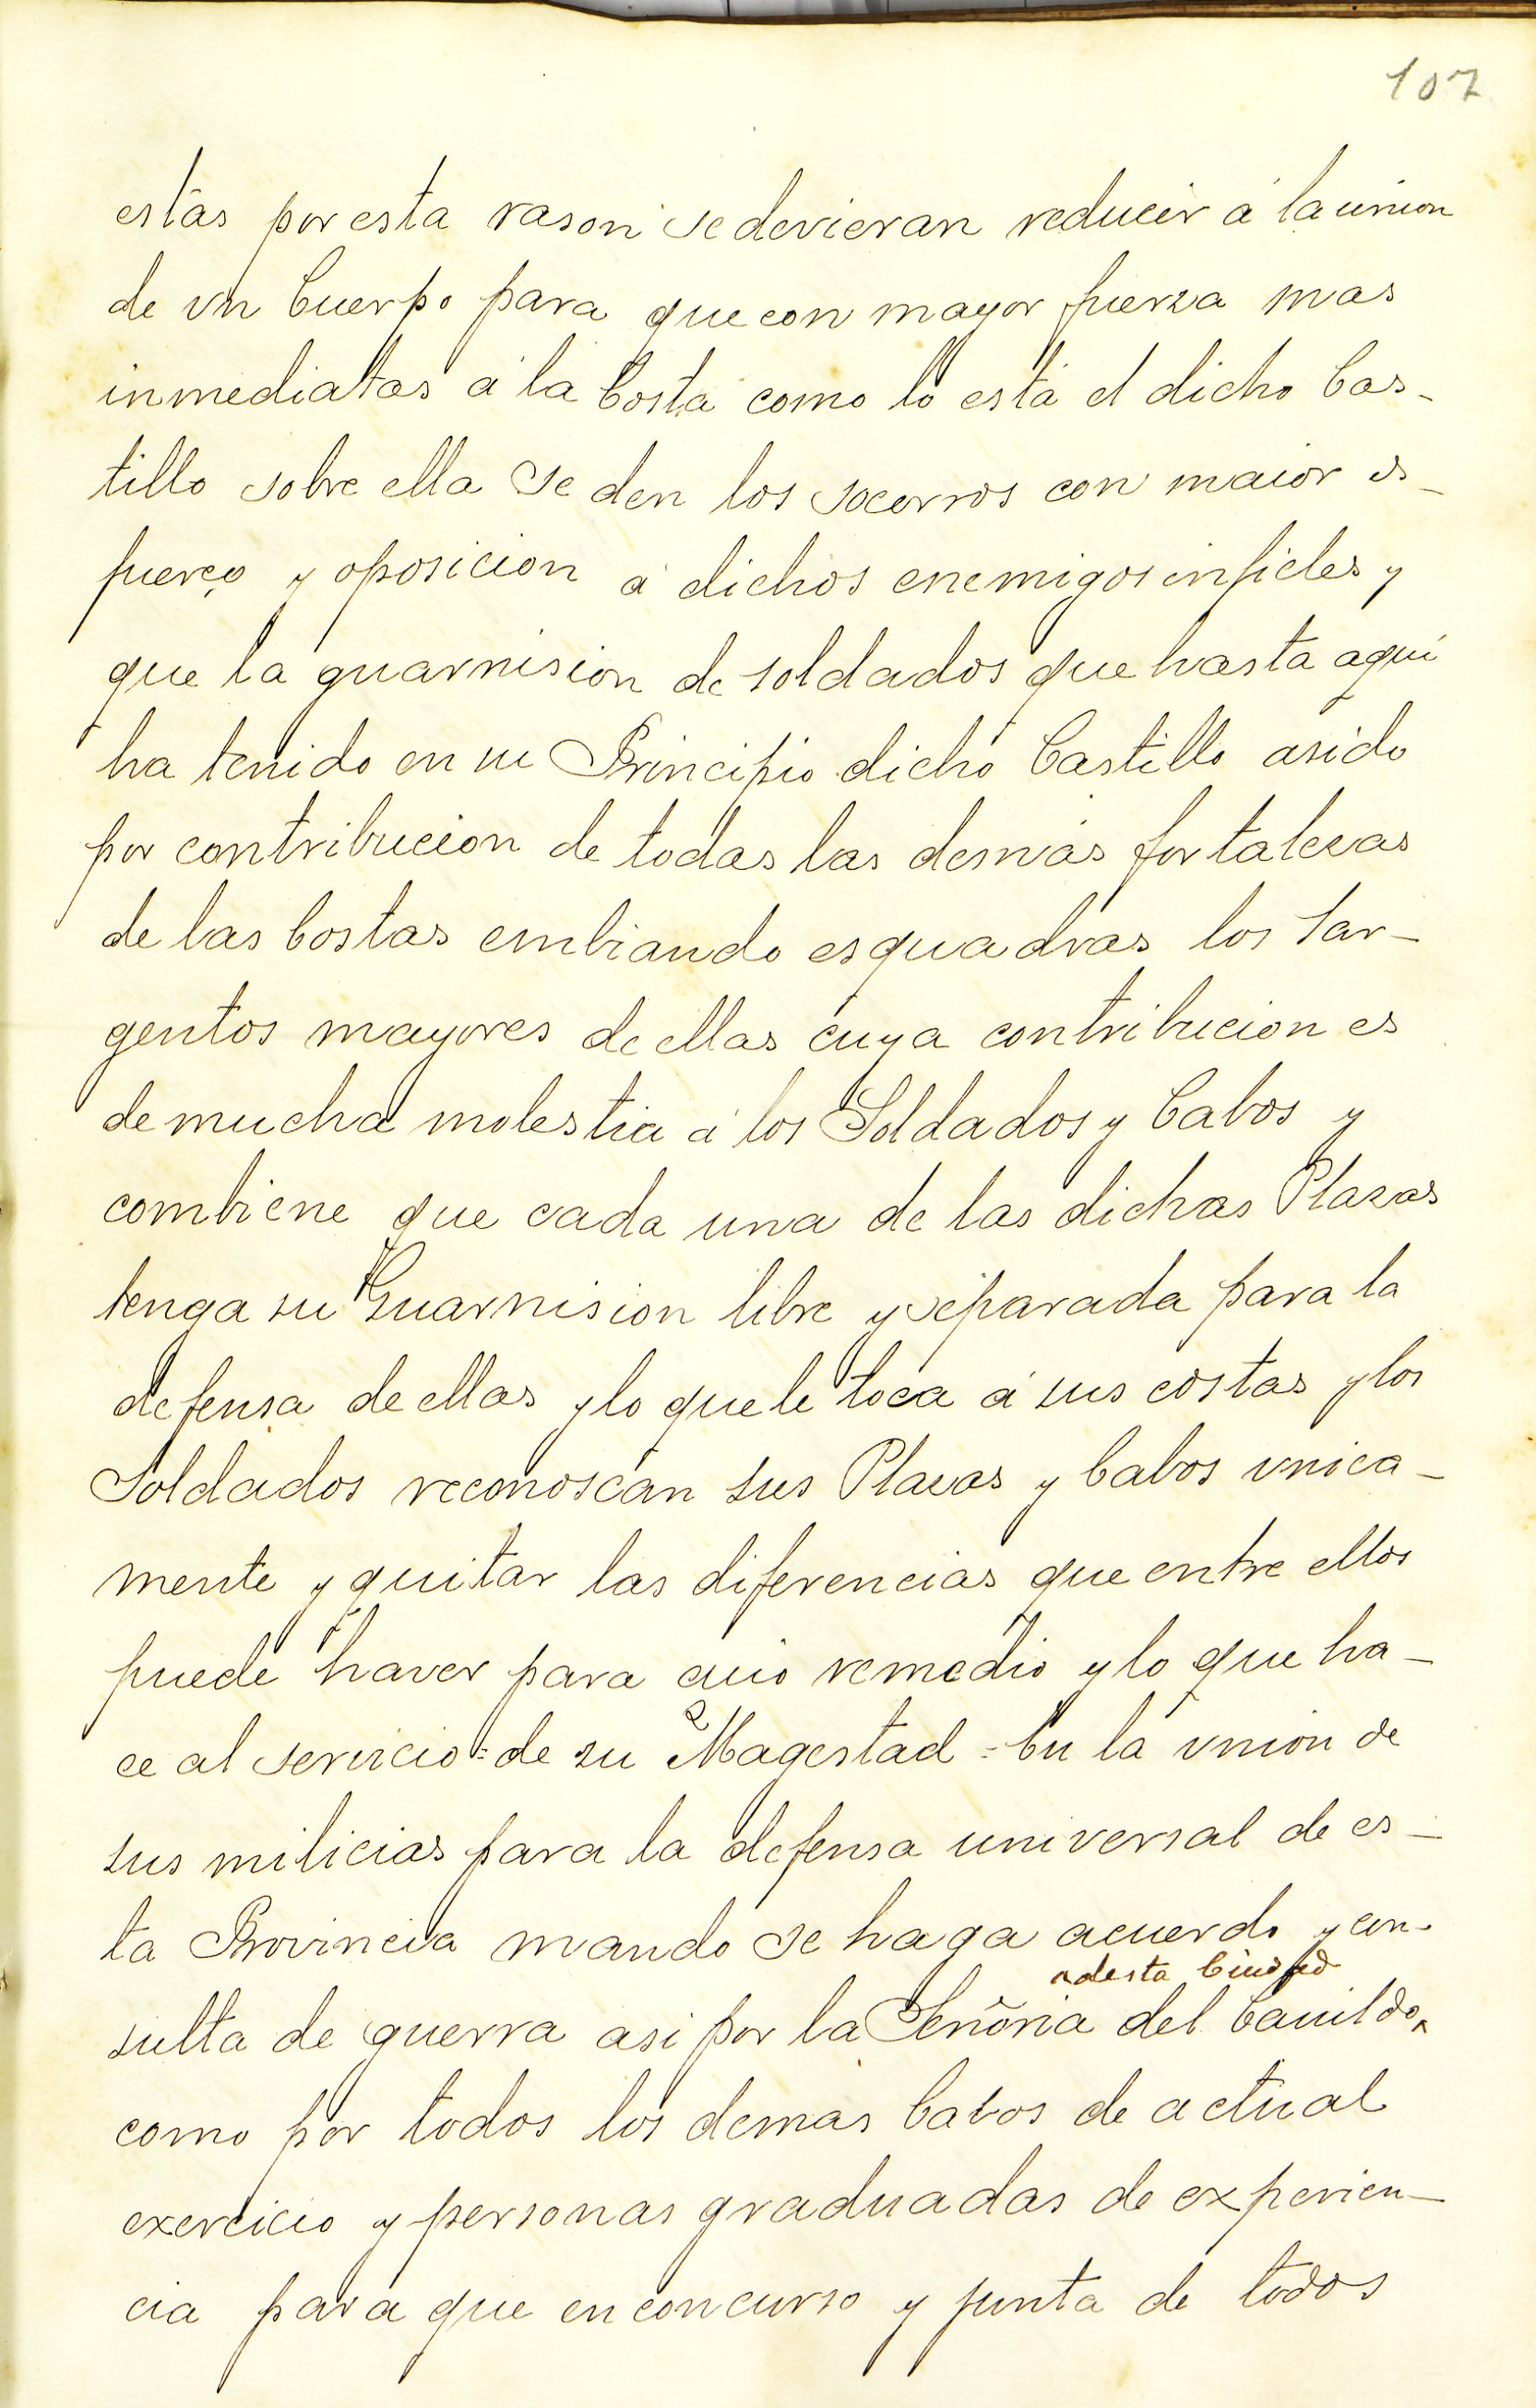 107
estás por esta rason se devieran reducir á la union
de vn Cuerpo para que con mayor fuerza mas
inmediatas á la Costa como lo está el dicho Cas-
tillo sobre ella se den los socorros con maior es-
fuerço y oposicion á dichos enemigos infieles y
que la guarnision de soldados que hasta aqui
ha tenido en su Principio dicho Castillo asido
por contribucion de todas las demas fortalezas
de las Costas embiando esquadras los Sar-
gentos mayores de ellas cuya contribucion es
de mucha molestia á los Soldados y Cabos y
combiene que cada una de las dichas Plazas
tenga su Guarnision libre y separada para la
defensa de ellas y lo que le toca á sus costas y los
Soldados reconoscan sus Plazas y Cabos vnica-
mente y quitar las diferencias que entre ellos
puede haver para cuio remedio y lo que ha-
ce al servicio=de su Magestad = En la vnion de
sus milicias para la defensa universal de es-
ta Provincia mando se haga acuerdo y con-
desta Ciudad
sulta de guerra asi por la Señoria del Cauildo
como por todos los demas Cabos de actual
exercicio y personas graduadas de experien-
cia para que en concurso y junta de todos